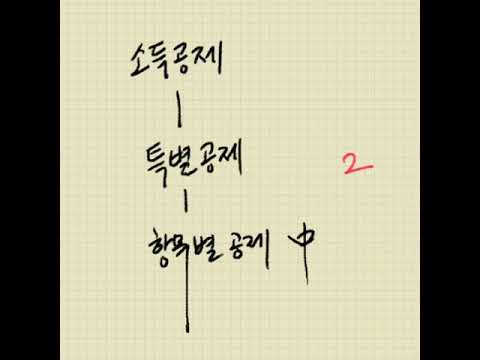 소득공제
특별공제 2
항목별공제 中